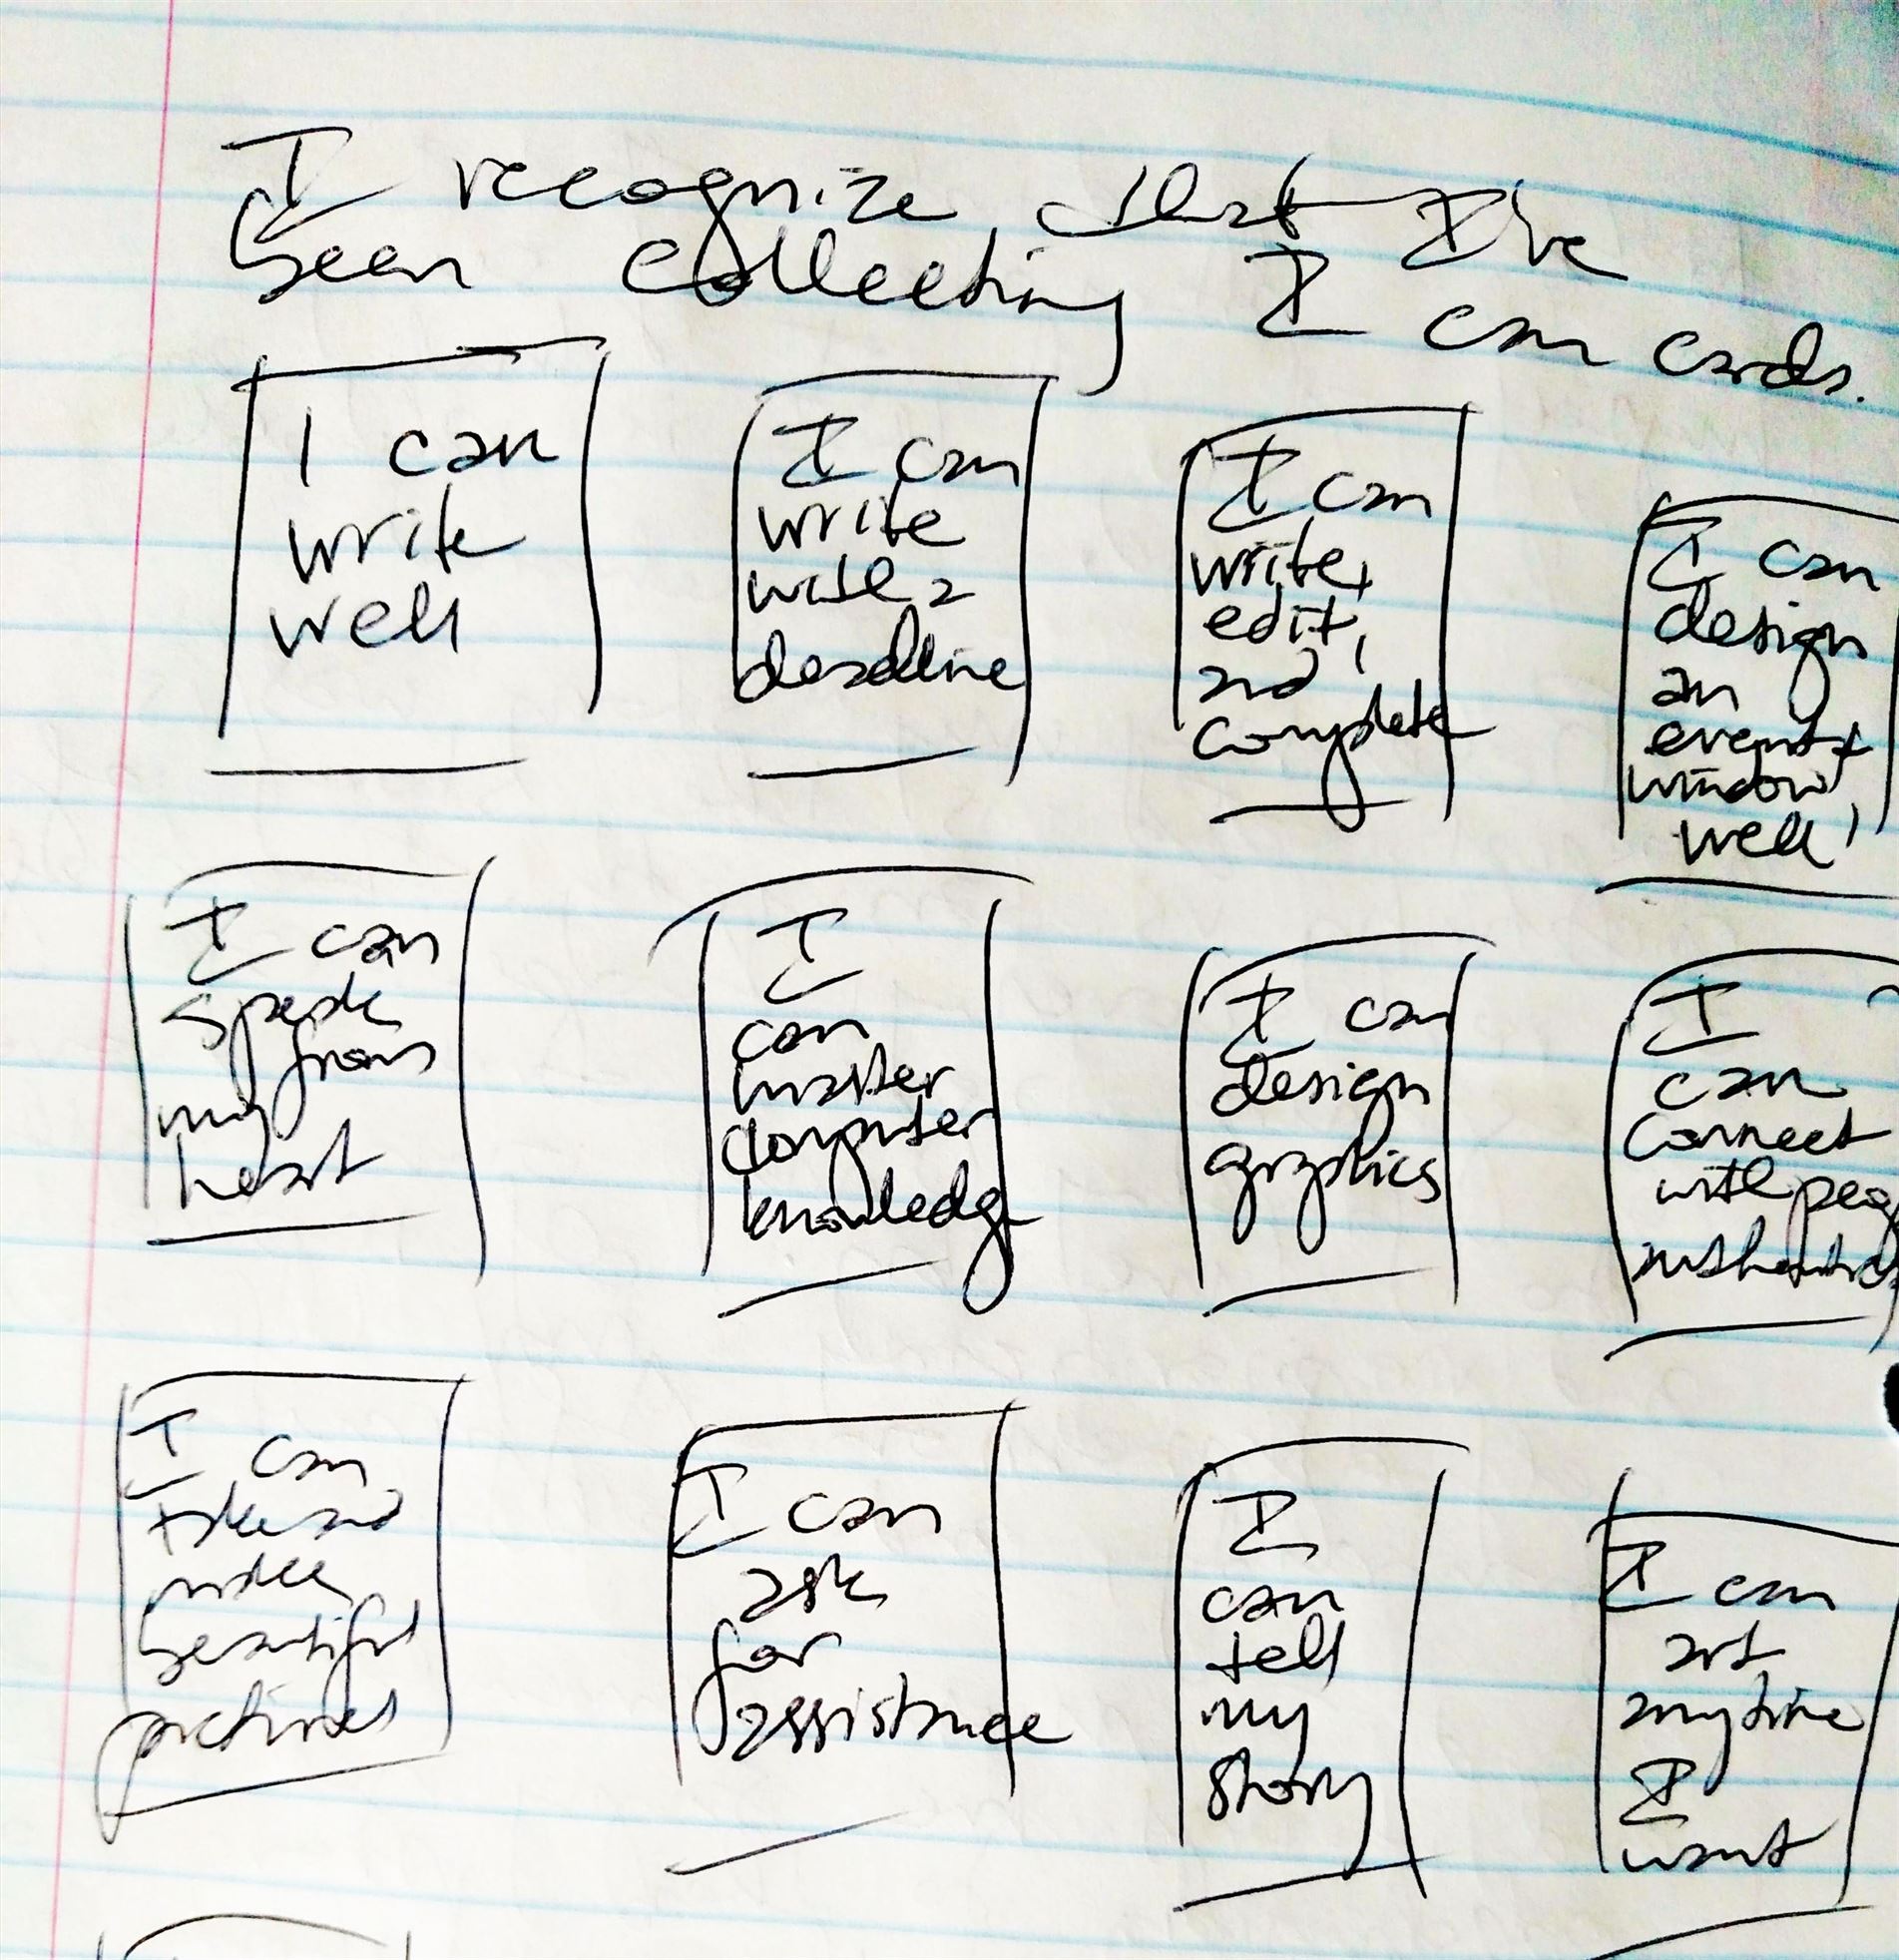 I recognize that I've
been collecting I can cards.
I can
write
well
I can
write
with a
deadline
I can
write,
edit,
and
complete
I can
design
an
event +
window
well
I can
speak
from
my
heart
I
can
master
computer
knowledge
I can
design
graphics
I
can
connect
with peo
authentic
I can
take and
make
beautiful
pictures
I can
ask
for
assistance
I
can
tell
my
story
I can
art
anytime
I
want